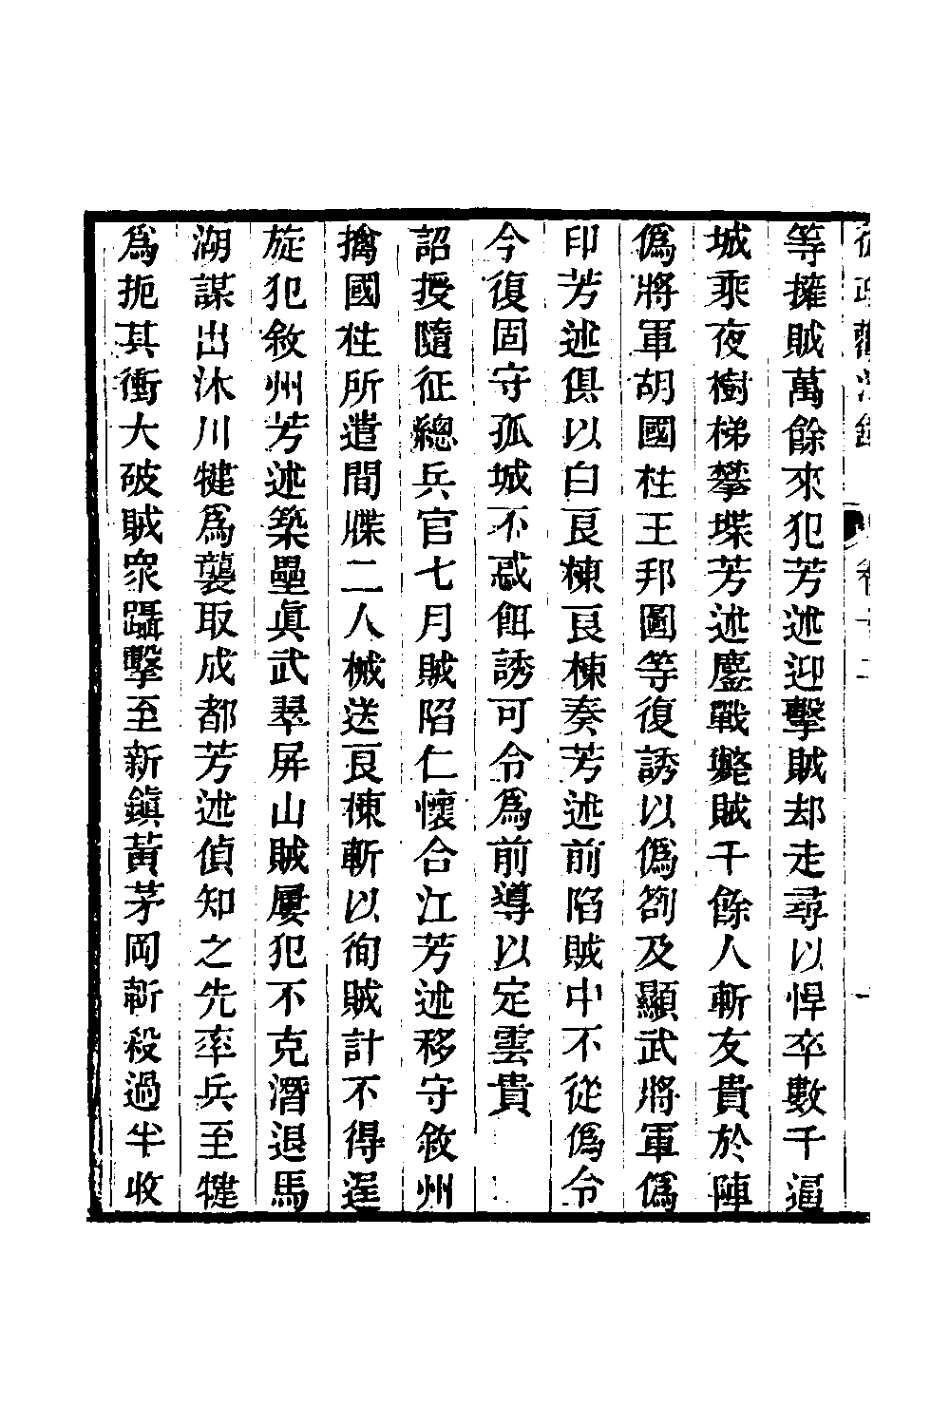 等擁賊萬餘來犯芳述迎擊賊却走尋以悍卒數千逼
城乘夜樹梯攀堞芳述鏖戰斃賊千餘人斬友貴於陣
僞將軍胡國柱王邦圖等復誘以僞劄及顯武將軍僞
印芳述俱以白良棟良棟奏芳述前陷賊中不從僞令
今復固守孤城不惑餌誘可令爲前導以定雲貴
詔授隨征總兵官七月賊陷仁懷合江芳述移守敘州
擒國柱所遣間牒二人械送良棟斬以徇賊計不得逞
旋犯敘州芳述築壘眞武翠屏山賊屢犯不克潛退馬
湖謀出沐川犍爲襲取成都芳述偵知之先率兵至犍
爲扼其衝大破賊眾躡擊至新鎭黃茅岡斬殺過半收